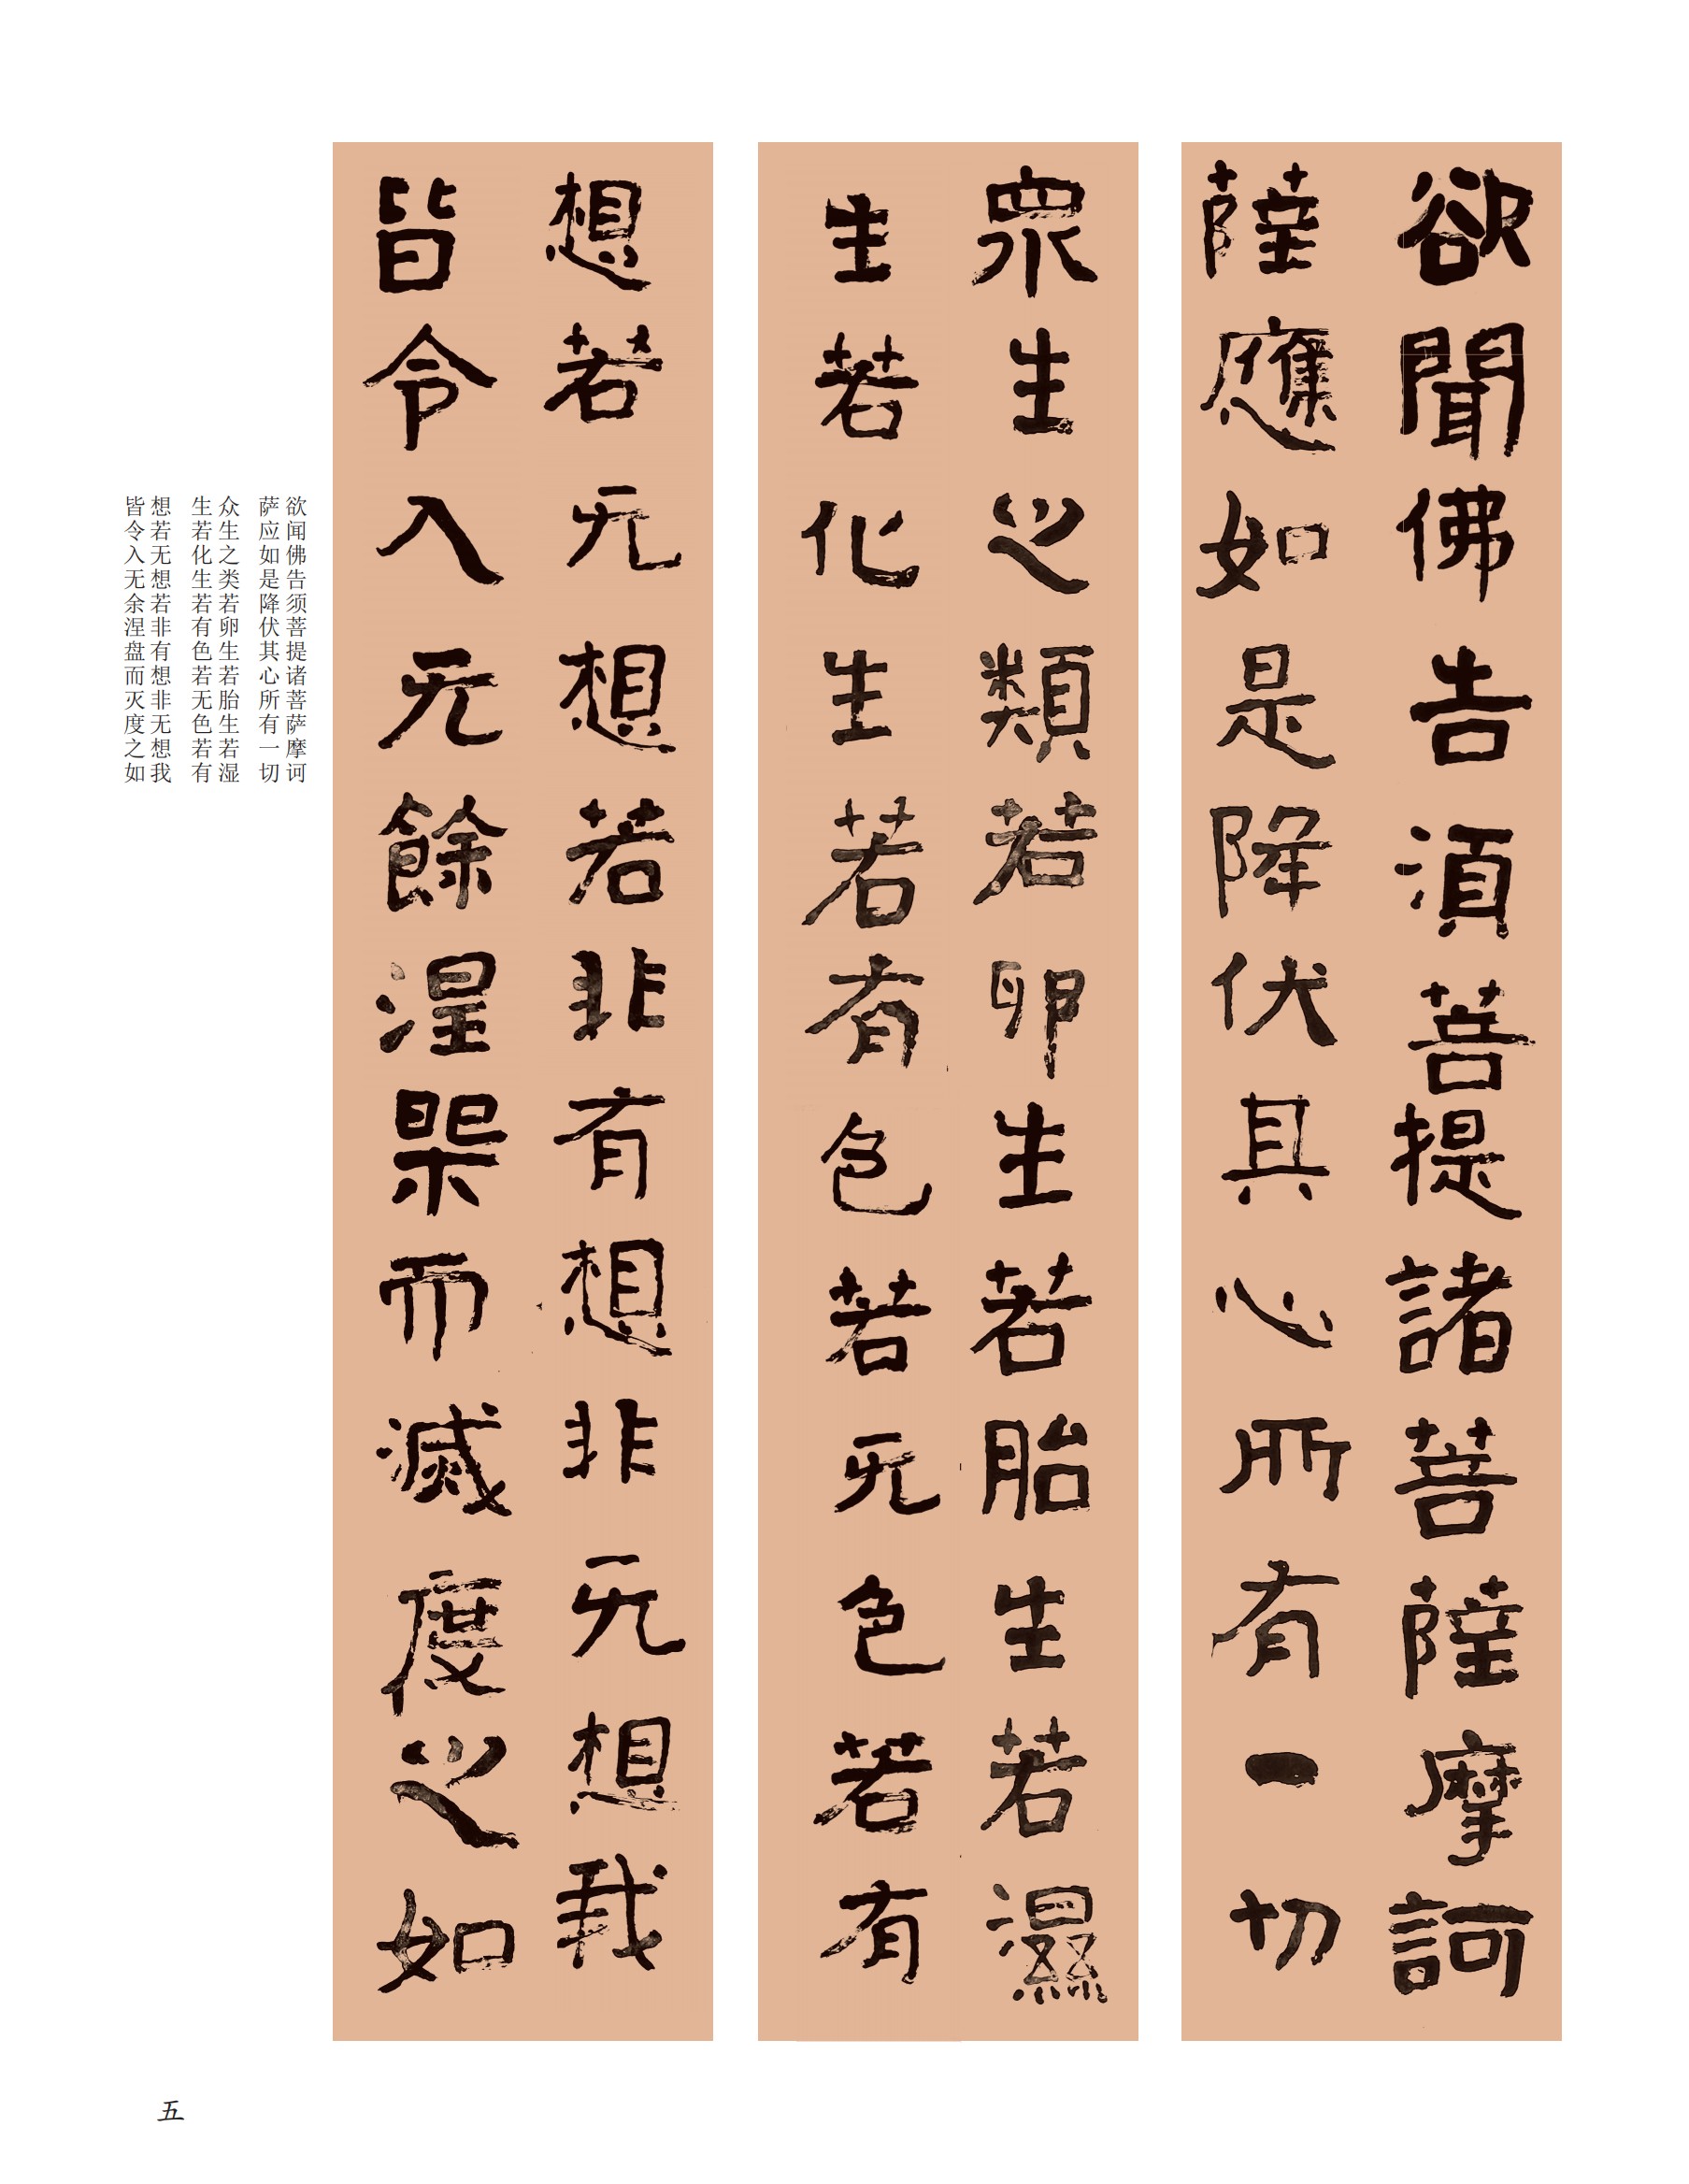 欲聞佛告湏菩提諸菩薩摩訶
薩應如是降伏其心所有一切
眾生之類若卵生若胎生若濕
生若化生若有色若无色若有
想若无想若非有想非无想我
皆令入无餘涅槃而滅度之如
欲闻佛告须菩提诸菩萨摩诃
萨应如是降伏其心所有一切
众生之类若卵生若胎生若湿
生若化生若有色若无色若有
想若无想若非有想非无想我
皆令入无余涅盘而灭度之如
五